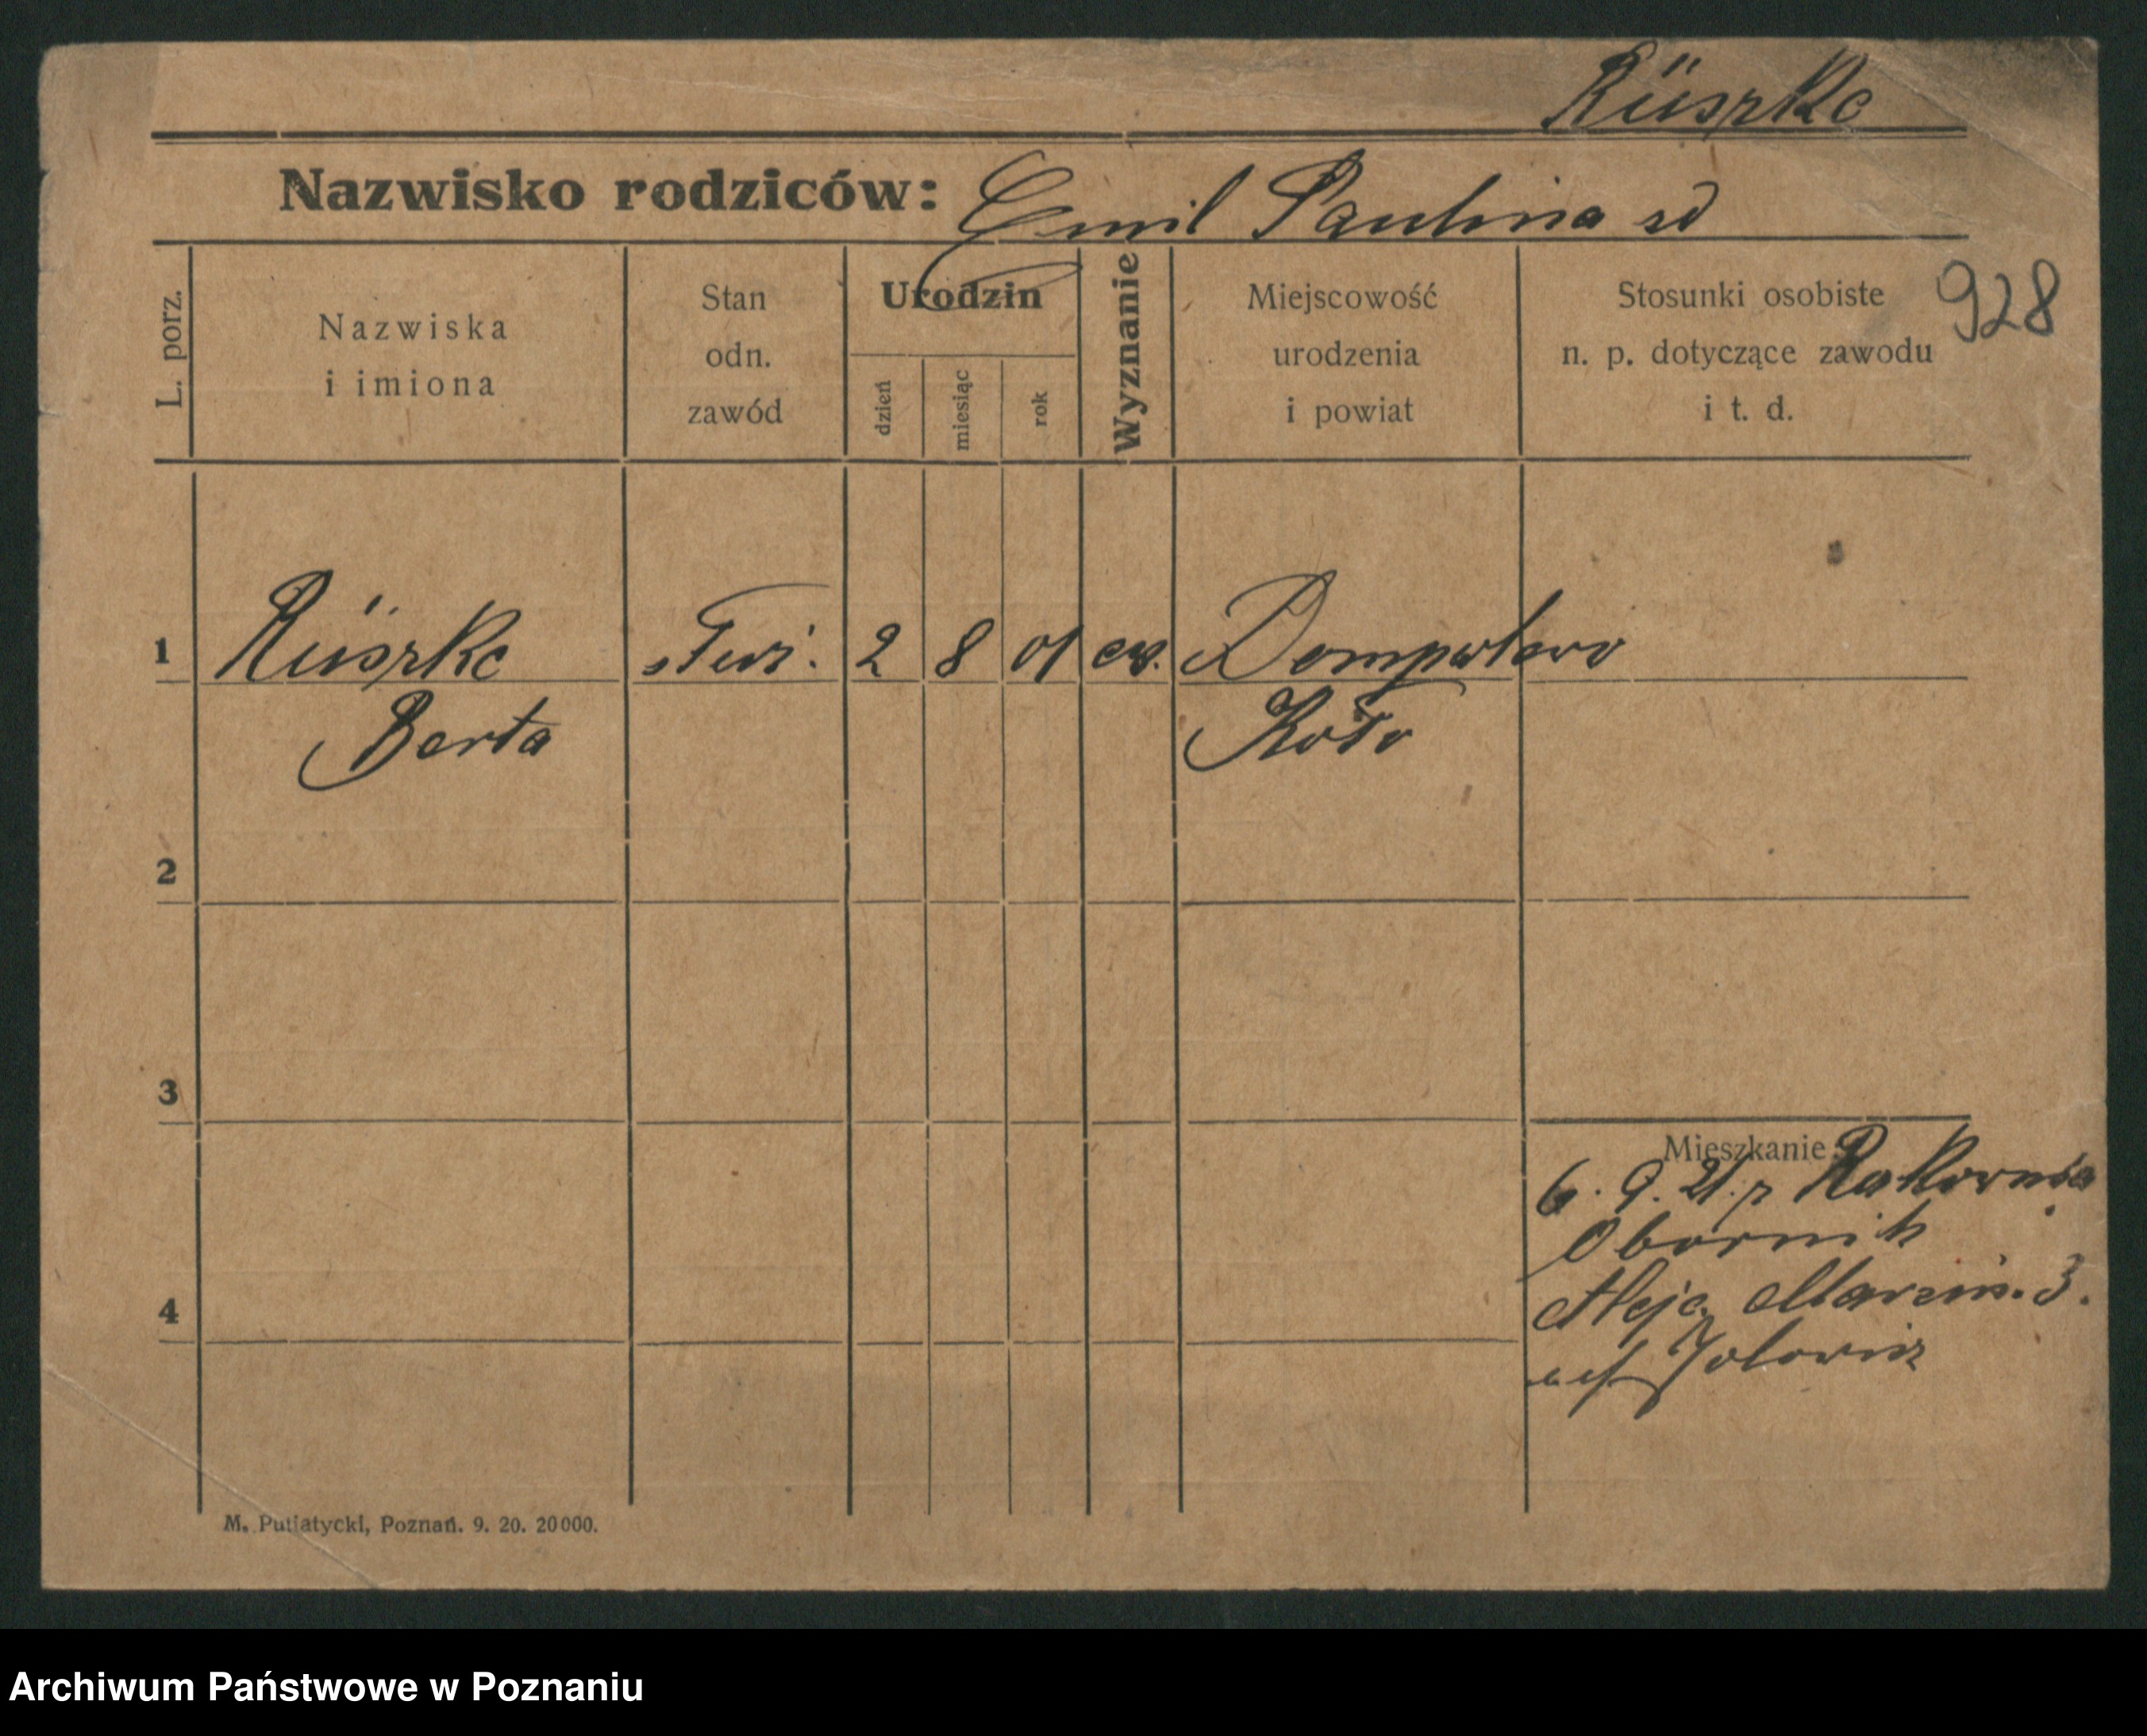 Rüszke
Nazwisko rodziców: Emil Paulina sd
928
L. porz.
Nazwiska
i imiona
Stan
odn.
zawód
Urodzin
dzień
miesiąc
rok
Wyznanie
Miejscowość
urodzenia
i powiat
Stosunki osobiste
n. p. dotyczące zawodu
i t. d.
1 Rüszke 2 8 01 ew.
Berta Koło
2
3
Mieszkanie:
6. 9. 21. z
Obornik
4
Aleje Marcin. 3.
M. Putiatycki, Poznań. 9. 20. 20000.
Archiwum Państwowe w Poznaniu